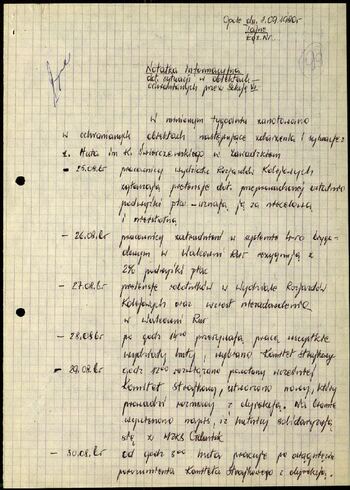 Opole dn. 1.09.1980r
Tajne
Egz. Nr.
Notatka Informacyjna
dot. sytuacji w obiektach
ochranianych przez Sekcję VI
W minionym tygodniu zanotowano
w ochranianych obiektach następujące zdarzenia i sytuacje:
1. Huta im. K. Świerczewskiego w Zawadzkiem
- 25.08.br pracownicy wydziału Rozjazdów Kolejowych
zgłaszają pretensje dot. przeprowadzonej ostatnio
podwyżki płac - uznają ją za niecelową
i nieistotną
- 26.08.br pracownicy zatrudnieni w systemie 4-ro bryga-
dowym w Walcowni Rur rezygnują z
2% podwyżki płac
- 27.08.br pretensje robotników w Wydziale Rozjazdów
Kolejowych oraz wzrost niezadowolenia
w Walcowni Rur
- 28.08.br po godz przerywają pracę wszystkie
wydziały huty, wybrano Komitet Strajkowy
- 29.08.br godz 12.00 rozwiązano powołany wcześniej
Komitet Strajkowy, utworzono nowy, który
prowadzi rozmowy z dyrekcją. Na bramie
wywieszono napis, iż hutnicy solidaryzują
się z MZKS Gdańsk
- 30.08.br od godz 5.00 huta pracuje po osiągnięciu
porozumienia Komitetu Strajkowego z dyrekcją.